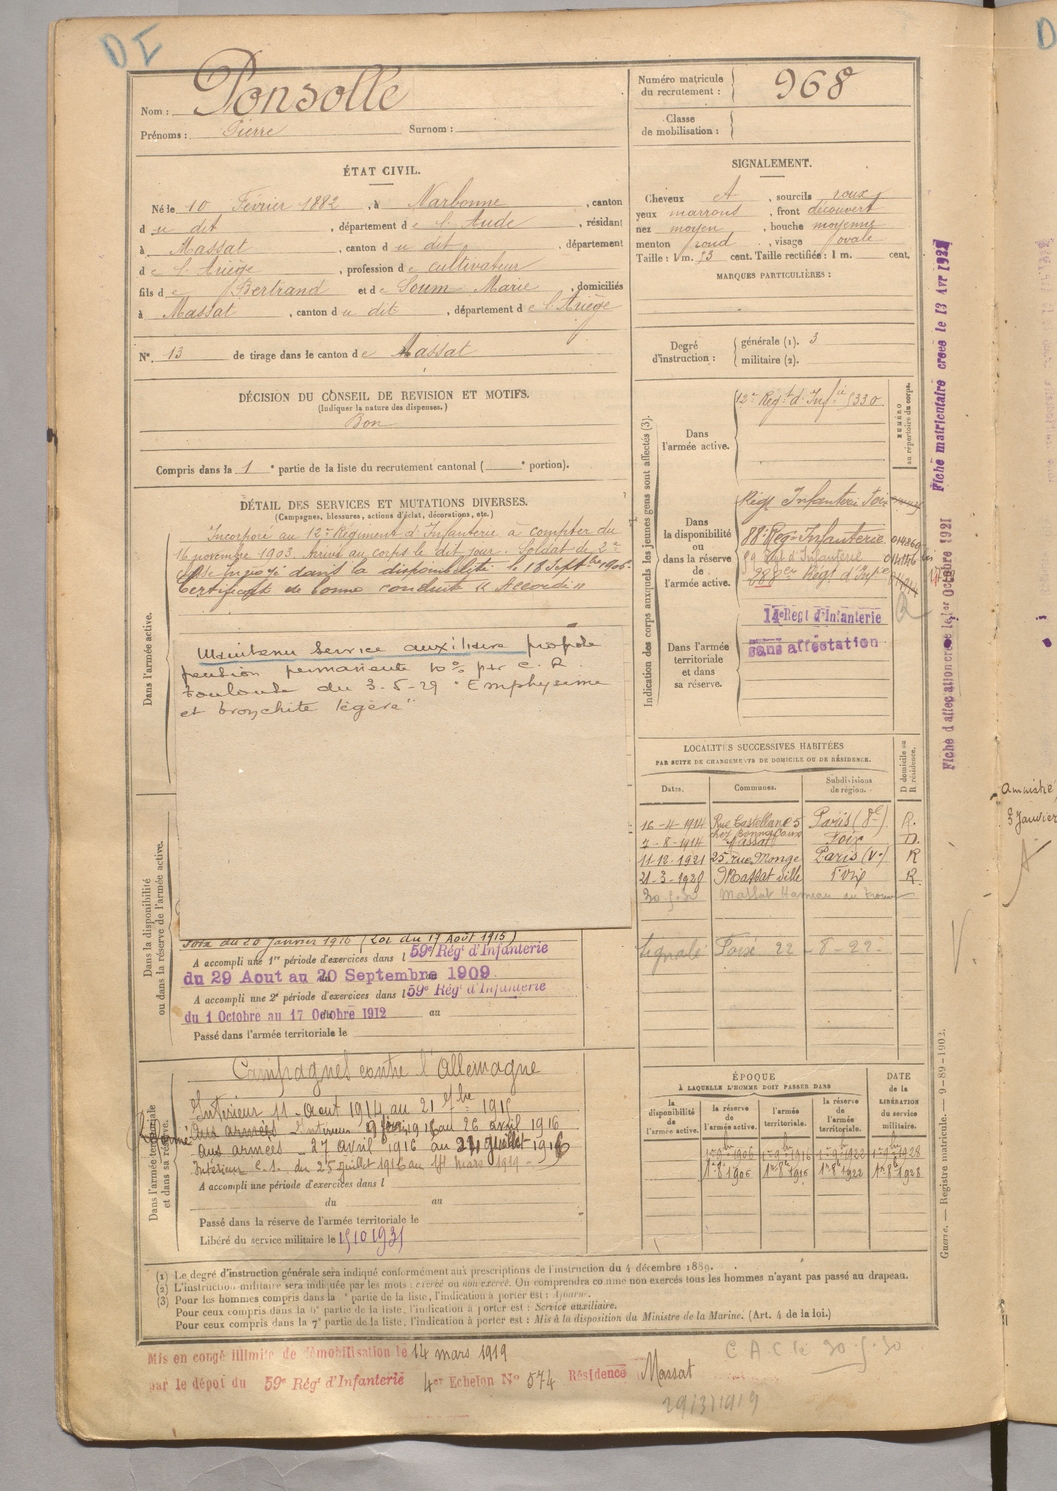 D I
Nom : Ponsolle
Prénoms : Pierre Surnom :
Numéro matricule du recrutement : 968
Classe de mobilisation :
ÉTAT CIVIL.
Né le 10 Février 1882, à Narbonne, canton
du dit, département de l'Aude, résidant
à Massat, canton du dit, département
de l'Ariège, profession de cultivateur
fils de Bertrand et de Soum Marie, domiciliés
à Massat, canton du dit, département de l'Ariège
N° 13 de tirage dans le canton de Massat
SIGNALEMENT.
Cheveux , sourcils roux
yeux marrons, front découvert
nez moyen, bouche moyenne
menton rond, visage ovale
Taille : 1 m. 53 cent. Taille rectifiée : 1 m. cent.
MARQUES PARTICULIÈRES :
Degré d'instruction : générale (1). 3
militaire (2).
DÉCISION DU CONSEIL DE REVISION ET MOTIFS.
(Indiquer la nature des dispenses.)
Bon
Compris dans la 1e partie de la liste du recrutement cantonal ( e portion).
DÉTAIL DES SERVICES ET MUTATIONS DIVERSES.
(Campagnes, blessures, actions d'éclat, décorations, etc.)
Dans l'armée active.
Incorporé au 12e Régiment d'Infanterie à compter du
16 novembre 1903. Arrivé au corps le dit jour. Soldat de 2e
classe. Envoyé dans la disponibilité le 18 Septbre 1906.
Certificat de bonne conduite « Accordé »
Maintenu service auxiliaire propose
pension permanente 10% par C. R.
Toulouse du 3-5-29 "Emphysème
et bronchite légère"
Dans la disponibilité ou dans la réserve de l'armée active.
Foix du 20 janvier 1916 (Loi du 17 Août 1915)
A accompli une 1re période d'exercices dans l 59e Rég' d'Infanterie
du 29 Aout au 20 Septembre 1909
A accompli une 2e période d'exercices dans l 59e Rég' d'Infanterie
du 1 Octobre au 17 Octobre 1912 au
Passé dans l'armée territoriale le
Dans l'armée territoriale et dans sa réserve.
Campagnes contre l'Allemagne
Intérieur 11 Aout 1914 au 21
aux armées Intérieur au 26 avril 1916
aux armées - 27 avril 1916 au 24 juillet 1916
Intérieur C.S. du 25 juillet 1916 au 14 mars 1919
A accompli une période d'exercices dans l
du au
Passé dans la réserve de l'armée territoriale le
Libéré du service militaire le
Indication des corps auxquels les jeunes gens sont affectés (3).
NUMÉRO au répertoire du corps.
Dans l'armée active.
12e Régt d'Infie 5330
Dans la disponibilité ou dans la réserve de l'armée active.
Régt Infanterie Foix
88e Rég Infanterie
59 Régt d'Infanterie
288e Régt d'Infie
Dans l'armée territoriale et dans sa réserve.
14e Régt d'Infanterie
sans affectation
Fiche matriculaire créée le 13 Avr 1921
Fiche d'affectation créée le 1er Octobre 1921
LOCALITÉS SUCCESSIVES HABITÉES
PAR SUITE DE CHANGEMENTS DE DOMICILE OU DE RÉSIDENCE.
Dates. Communes. Subdivisions de région. D domicile ou R résidence.
16-4-1914 Rue Castellane 5 Paris (8e) R.
7-8-1914 Massat Foix D.
11-12-1921 25, rue Monge Paris (Ve) R
21-3-1929 Massat ville Foix R
30-5-30 Massat Hameau
Signalé Foix 22-8-22
ÉPOQUE
À LAQUELLE L'HOMME DOIT PASSER DANS
la disponibilité de l'armée active. la réserve de l'armée active. l'armée territoriale. la réserve de l'armée territoriale.
DATE de la LIBÉRATION du service militaire.
Guerre. — Registre matricule. — 9-89-1902.
(1) Le degré d'instruction générale sera indiqué conformément aux prescriptions de l'instruction du 4 décembre 1889.
(2) L'instruction militaire sera indiquée par les mots : exercé ou non exercé. On comprendra comme non exercés tous les hommes n'ayant pas passé au drapeau.
(3) Pour les hommes compris dans la partie de la liste, l'indication à porter est : Ajourné.
Pour ceux compris dans la partie de la liste, l'indication à porter est : Service auxiliaire.
Pour ceux compris dans la 7e partie de la liste, l'indication à porter est : Mis à la disposition du Ministre de la Marine. (Art. 4 de la loi.)
Mis en congé illimité de démobilisation le 14 mars 1919
par le dépot du 59e Rég' d'Infanterie 4er Echelon N° 574 Résidence Massat
C A C le 30-5-30
29/3/1919
D